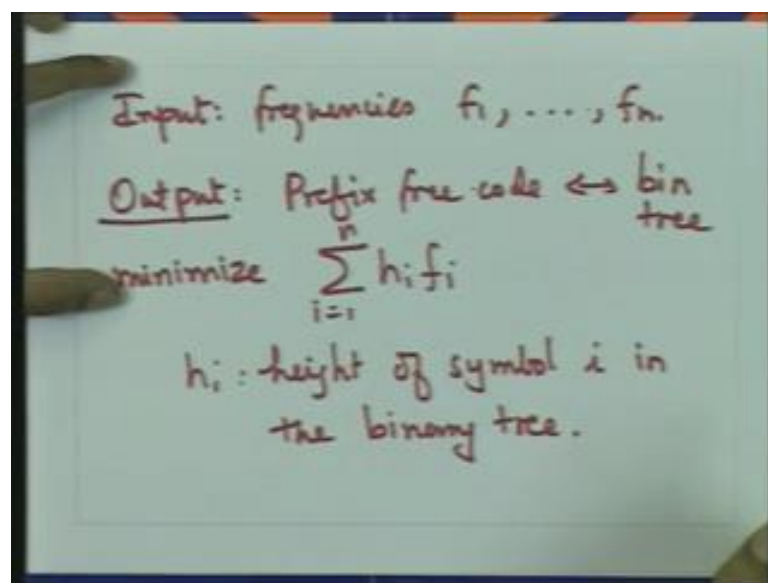 Input: frequencies f₁, ...., fₙ.
Output: Prefix free code ↔ bin tree
minimize ∑ᵢ₌₁ⁿ hᵢ fᵢ
hᵢ : height of symbol i in
the binary tree.